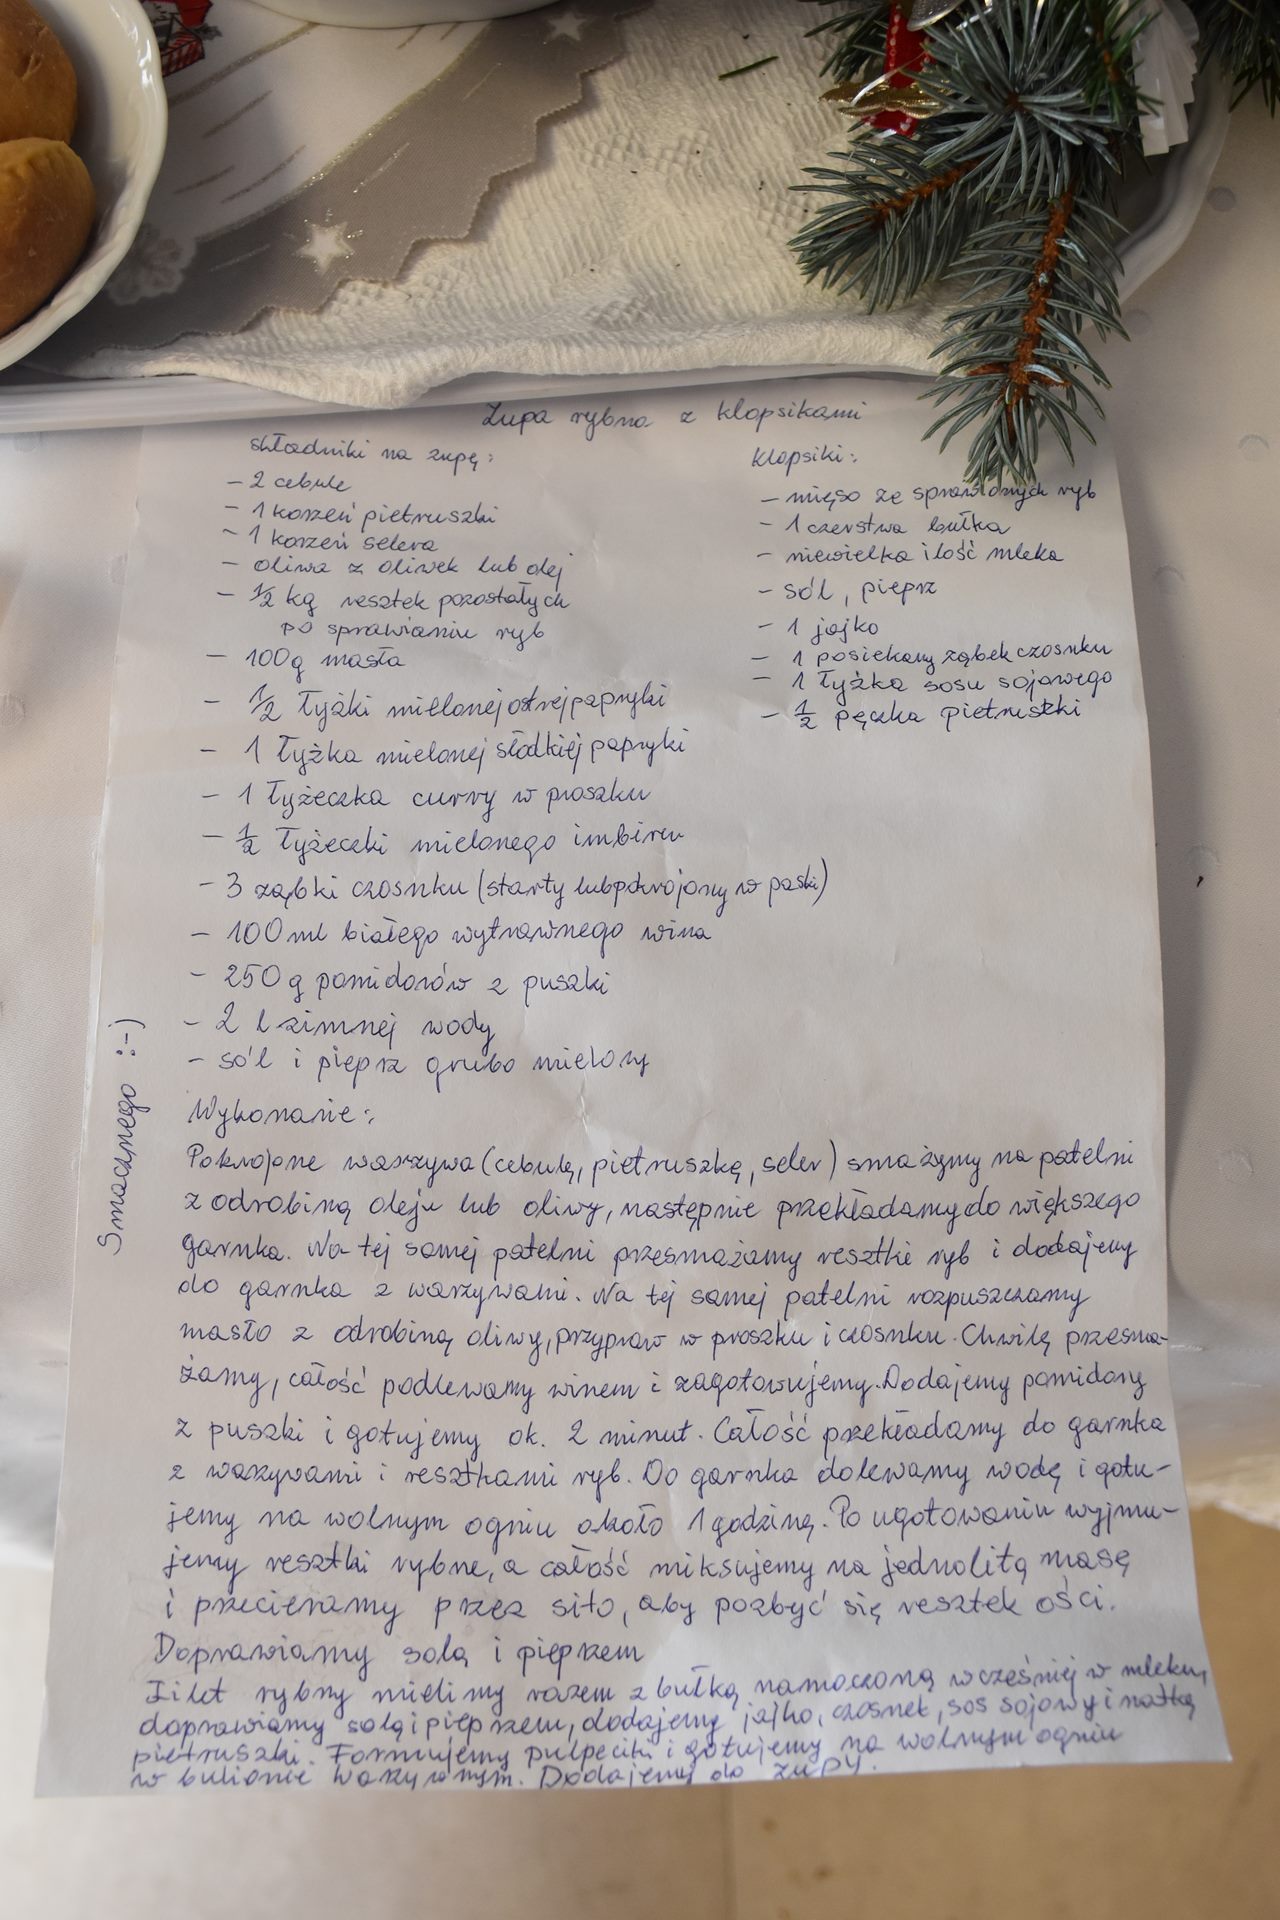 Zupa rybna z klopsikami
składniki na zupę:
- 2 cebule
- 1 korzeń pietruszki
- 1 korzeń selera
- oliwa z oliwek lub olej
- 1/2 kg resztek pozostałych
po sprawianiu ryb
- 100g masła
- 1/2 łyżki mielonej ostrej papryki
- 1 łyżka mielonej słodkiej papryki
- 1 łyżeczka curry w proszku
- 1/2 łyżeczki mielonego imbiru
- 3 ząbki czosnku (starty lub pokrojony w paski)
- 100 ml białego wytrawnego wina
- 250 g pomidorów z puszki
- 2 l zimnej wody
- sól i pieprz grubo mielony
Klopsiki:
- mięso ze sprawionych ryb
- 1 czerstwa bułka
- niewielka ilość mleka
- sól, pieprz
- 1 jajko
- 1 posiekany ząbek czosnku
- 1 łyżka sosu sojowego
- 1/2 pęczka pietruszki
Wykonanie:
Pokrojone warzywa (cebulę, pietruszkę, seler) smażymy na patelni
z odrobiną oleju lub oliwy, następnie przekładamy do większego
garnka. Na tej samej patelni przesmażamy resztki ryb i dodajemy
do garnka z warzywami. Na tej samej patelni rozpuszczamy
masło z odrobiną oliwy, przypraw w proszku i czosnku. Chwilę przesma-
żamy, całość podlewamy winem i zagotowujemy. Dodajemy pomidory
z puszki i gotujemy ok. 2 minut. Całość przekładamy do garnka
z warzywami i resztkami ryb. Do garnka dolewamy wodę i gotu-
jemy na wolnym ogniu około 1 godziną. Po ugotowaniu wyjmu-
jemy resztki rybne, a całość miksujemy na jednolitą masę
i przecieramy przez sito, aby pozbyć się resztek ości.
Doprawiamy solą i pieprzem
Filet rybny mielimy razem z bułką namoczoną wcześniej w mleku,
doprawiamy solą i pieprzem, dodajemy jajko, czosnek, sos sojowy i natkę
pietruszki. Formujemy pulpeciki i gotujemy na wolnym ogniu
w bulionie warzywnym. Dodajemy do zupy.
Smacznego :-)